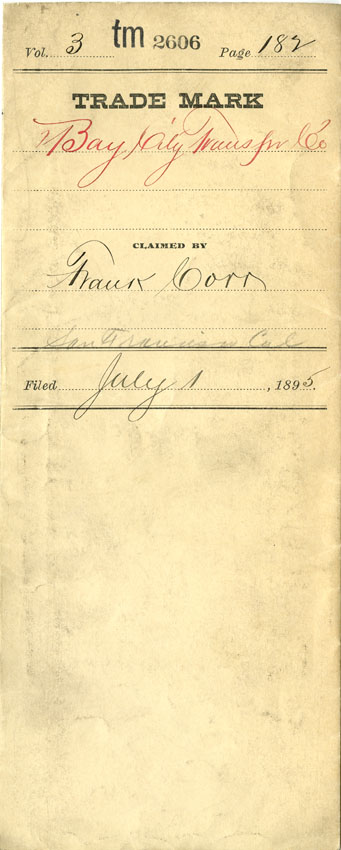 Vol. 3 tm 2606 Page 182
TRADE MARK
Bay City Transfer Co
CLAIMED BY
Frank Corr
San Francisco Cal
Filed July 1, 1895.